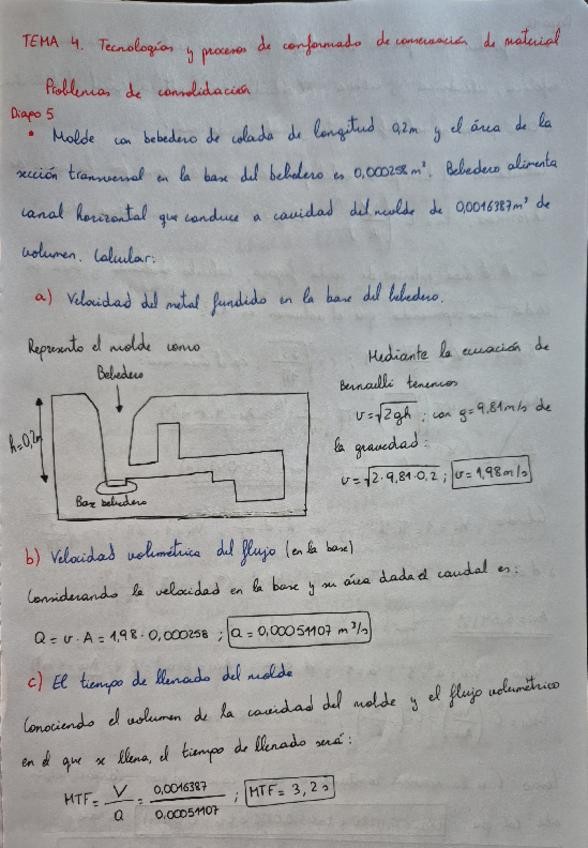 TEMA 4. Tecnologías y procesos de conformado de conservación de material
Problemas de consolidación
Diapo 5
• Molde con bebedero de colada de longitud 0,2m y el área de la
sección transversal en la base del bebedero es 0,000258 m². Bebedero alimenta
canal horizontal que conduce a cavidad del molde de 0,0016387m³ de
volumen. Calcular:
a) Velocidad del metal fundido en la base del bebedero.
Represento el molde como
Bebedero
h=0,2m
Base bebedero
Mediante la ecuación de
Bernoulli tenemos
v=√2gh ; con g=9,81m/s de
la gravedad:
v=√2·9,81·0,2 ; v=1,98m/s
b) Velocidad volumétrica del flujo (en la base)
Considerando la velocidad en la base y su área dada el caudal es:
Q = v·A = 1,98·0,000258 ; Q = 0,00051107 m³/s
c) El tiempo de llenado del molde
Conociendo el volumen de la cavidad del molde y el flujo volumétrico
en el que se llena, el tiempo de llenado será:
MTF = V/Q = 0,0016387/0,00051107 ; MTF = 3,2s